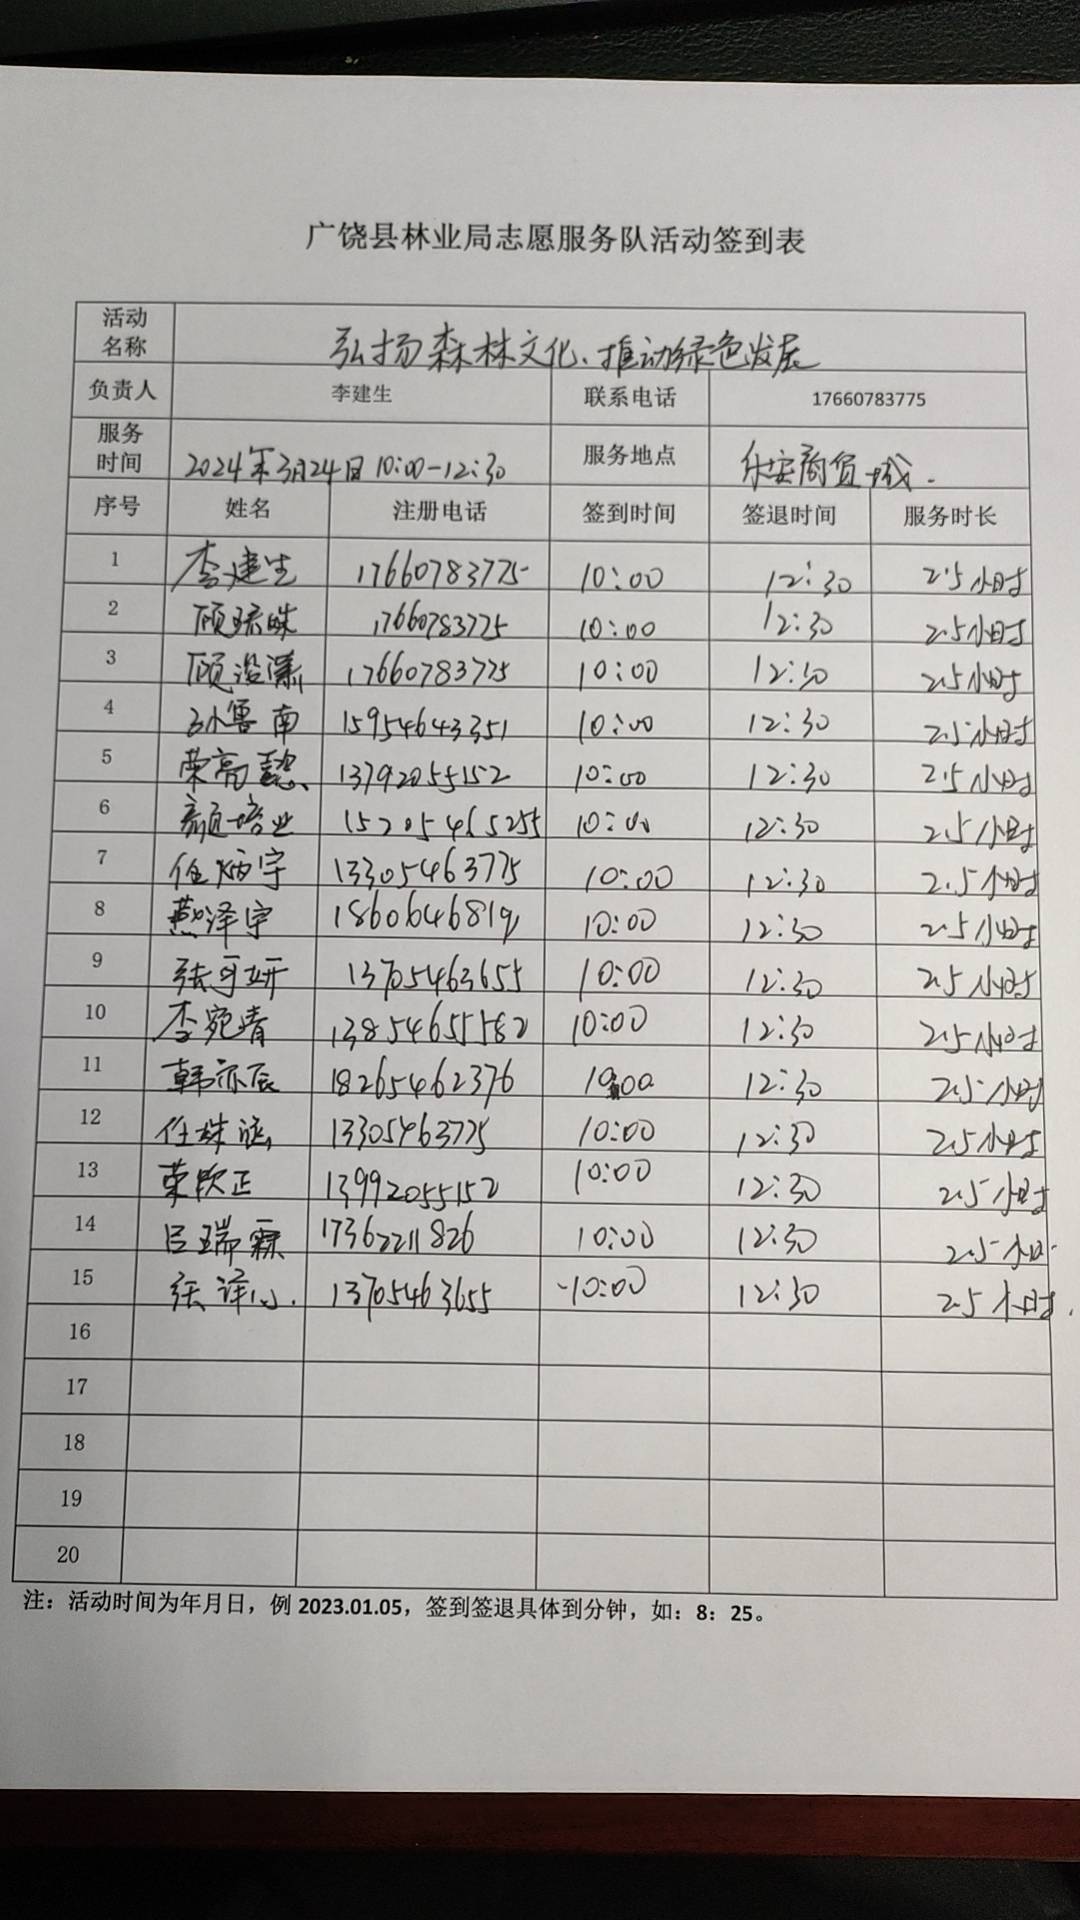 广饶县林业局志愿服务队活动签到表
活动名称 弘扬森林文化、推动绿色发展
负责人 李建生 联系电话 17660783775
服务时间 2024年3月24日10:00-12:30 服务地点 乐安商贸城.
序号 姓名 注册电话 签到时间 签退时间 服务时长
1 李建生 17660783775 10:00 12:30 2.5小时
2 顾珠 17660783775 10:00 12:30 2.5小时
3 顾潇 17660783775 10:00 12:30 2.5小时
4 孙鲁南 15954643351 10:00 12:30 2.5小时
5 荣高懿 13792055152 10:00 12:30 2.5小时
6 颜培业 15205465255 10:00 12:30 2.5小时
7 任炳宇 13305463775 10:00 12:30 2.5小时
8 燕泽宇 10:00 12:30 2.5小时
9 张可妍 13705463655 10:00 12:30 2.5小时
10 李宛青 13854655582 10:00 12:30 2.5小时
11 韩亦辰 18265462376 10:00 12:30 2.5小时
12 任珠涵 13305463775 10:00 12:30 2.5小时
13 荣欣正 13992055152 10:00 12:30 2.5小时
14 吕瑞霖 17362211826 10:00 12:30 2.5小时
15 张译心. 13705463655 10:00 12:30 2.5小时.
16
17
18
19
20
注：活动时间为年月日，例 2023.01.05，签到签退具体到分钟，如：8：25。